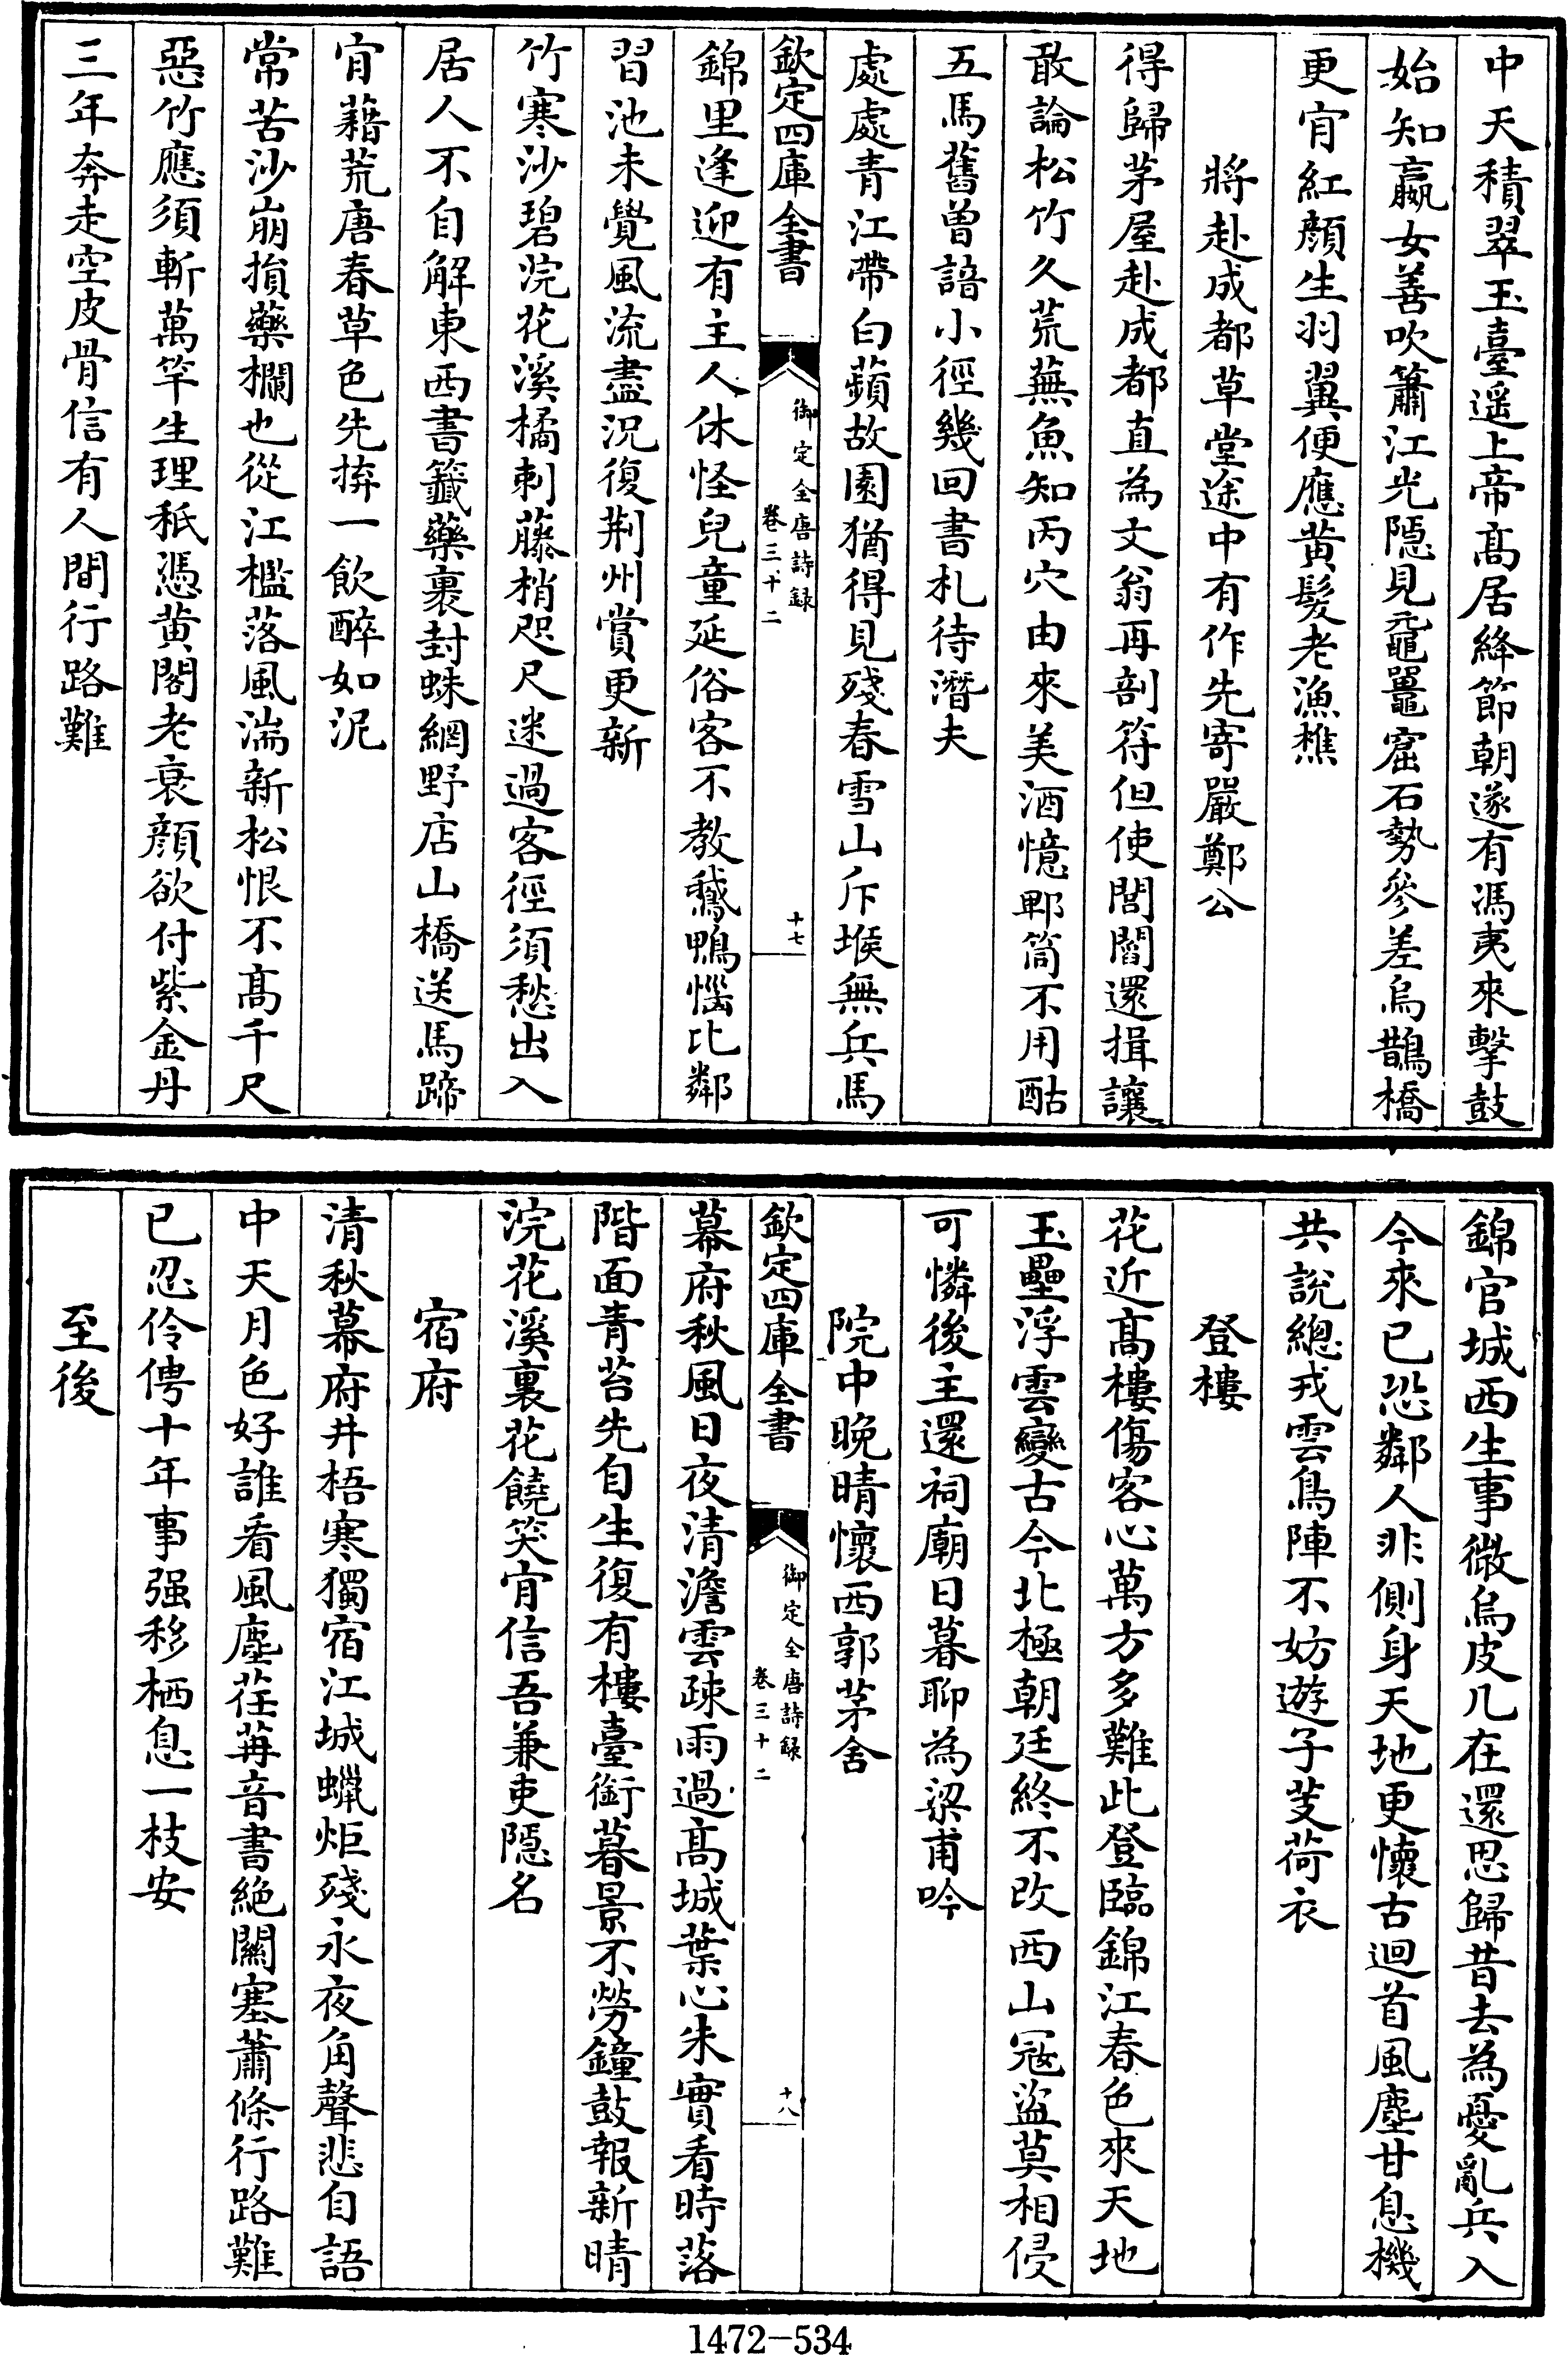 中天積翠玉臺遥上帝髙居絳節朝遂有馮夷來擊鼓
始知嬴女善吹簫江光隠見黿鼉窟石勢參差烏鵲橋
更肻紅顔生羽翼便應黄髪老漁樵
將赴成都草堂途中有作先寄嚴鄭公
得歸茅屋赴成都直為文翁再剖符但使閭閻還揖讓
敢論松竹久荒蕪魚知丙穴由來美酒憶郫筒不用酤
五馬舊曽諳小徑幾回書札待潛夫
處處青江帶白蘋故園猶得見殘春雪山斥堠無兵馬
欽定四庫全書
御定全唐詩録
卷三十二
十七
錦里逢迎有主人休怪兒童延俗客不教鵞鴨惱比鄰
習池未覺風流盡況復荆州賞更新
竹寒沙碧浣花溪橘刺藤梢咫尺迷過客徑須愁出入
居人不自解東西書籤藥裹封蛛網野店山橋送馬蹄
肻藉荒唐春草色先拚一飲醉如泥
常苦沙崩損藥欄也從江檻落風湍新松恨不髙千尺
惡竹應須斬萬竿生理秖憑黄閣老衰顔欲付紫金丹
三年奔走空皮骨信有人間行路難
錦官城西生事微烏皮几在還思歸昔去為憂亂兵入
今來已恐鄰人非側身天地更懷古迴首風塵甘息機
共說總戎雲鳥陣不妨遊子芰荷衣
登樓
花近髙樓傷客心萬方多難此登臨錦江春色來天地
玉壘浮雲變古今北極朝廷終不改西山冦盜莫相侵
可憐後主還祠廟日暮聊為梁甫吟
院中晚晴懷西郭茅舍
欽定四庫全書
御定全唐詩録
卷三十二
十八
幕府秋風日夜清澹雲疎雨過髙城葉心朱實看時落
階面青苔先自生復有樓臺銜暮景不勞鐘鼓報新晴
浣花溪裏花饒笑肻信吾兼吏隠名
宿府
清秋幕府井梧寒獨宿江城蠟炬殘永夜角聲悲自語
中天月色好誰看風塵荏苒音書絶關塞蕭條行路難
已忍伶俜十年事强移栖息一枝安
至後
1472-534